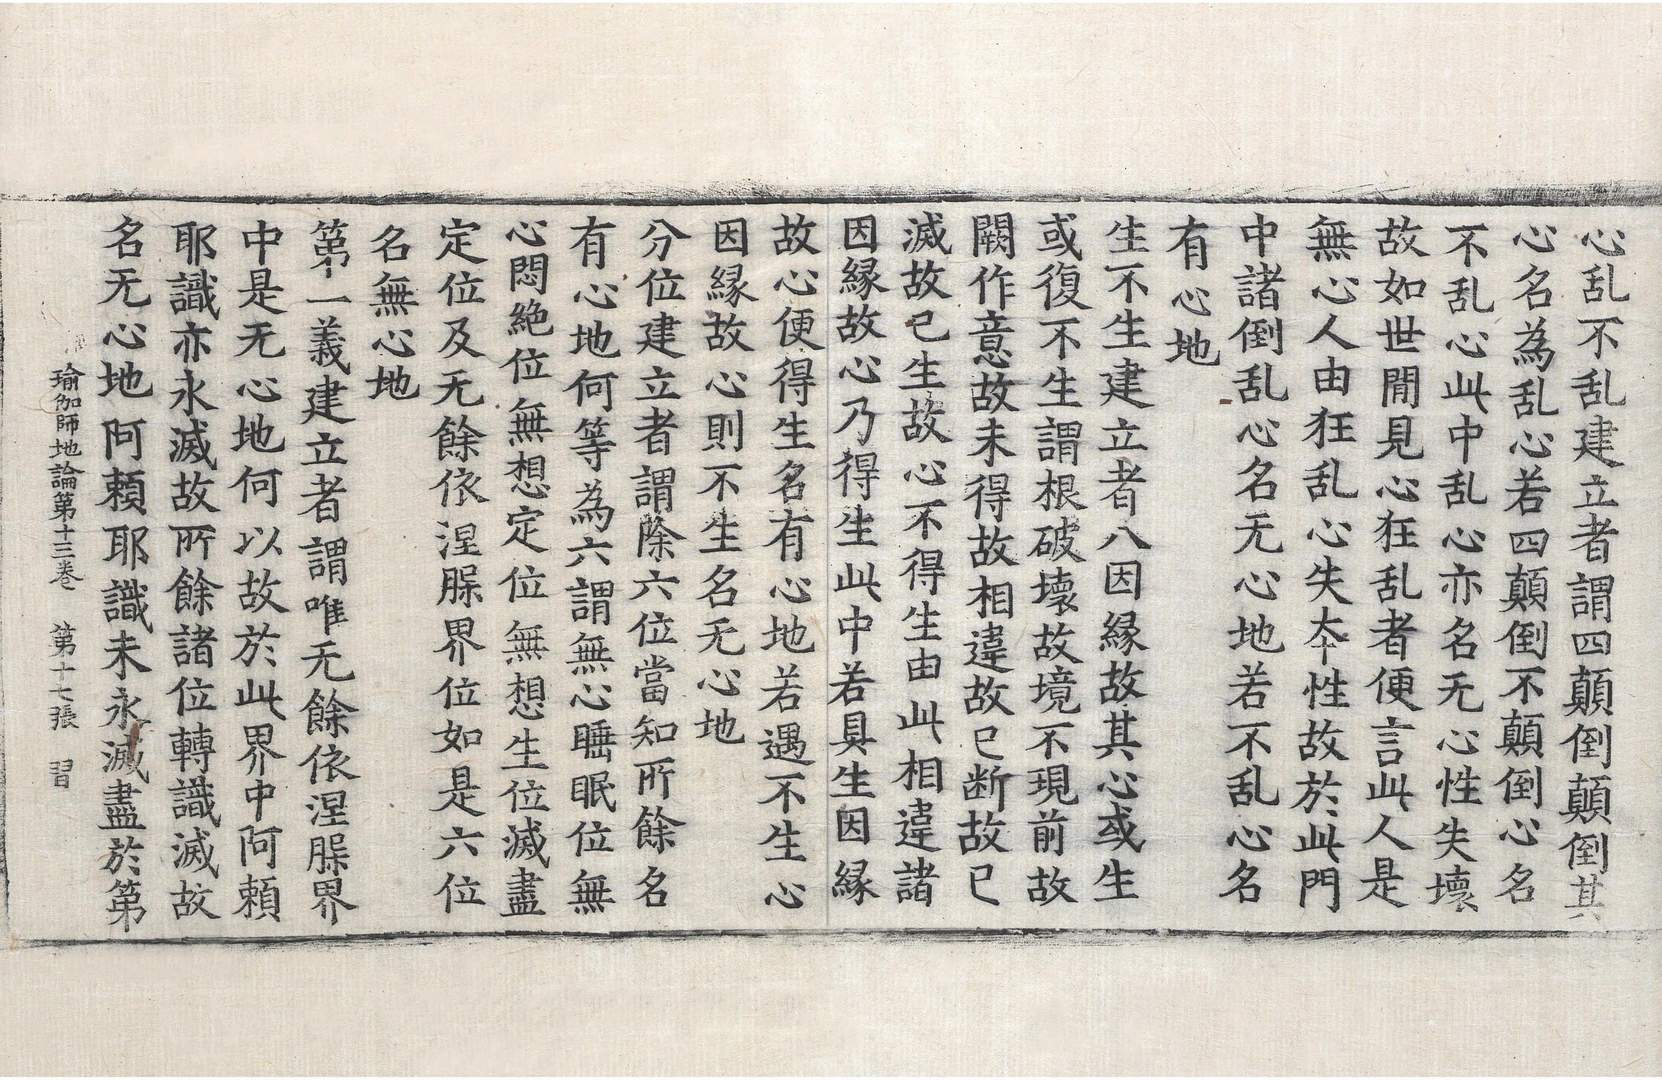 心乱不乱建立者謂四顛倒顛倒其
心名為乱心若四顛倒不顛倒心名
不乱心此中乱心亦名无心性失壞
故如世間見心狂乱者便言此人是
無心人由狂乱心失夲性故於此門
中諸倒乱心名无心地若不乱心名
有心地
生不生建立者八因縁故其心或生
或復不生謂根破壞故境不現前故
闕作意故未得故相違故已断故已
滅故已生故心不得生由此相違諸
因縁故心乃得生此中若具生因縁
故心便得生名有心地若遇不生心
因縁故心則不生名无心地
分位建立者謂除六位當知所餘名
有心地何等為六謂無心睡眠位無
心悶絶位無想定位無想生位滅盡
定位及无餘依涅脲界位如是六位
名無心地
第一義建立者謂唯无餘依涅脲界
中是无心地何以故於此界中阿頼
耶識亦永滅故所餘諸位轉識滅故
名无心地阿頼耶識未永滅盡於第
瑜伽師地論第十三巻 第十七張 習